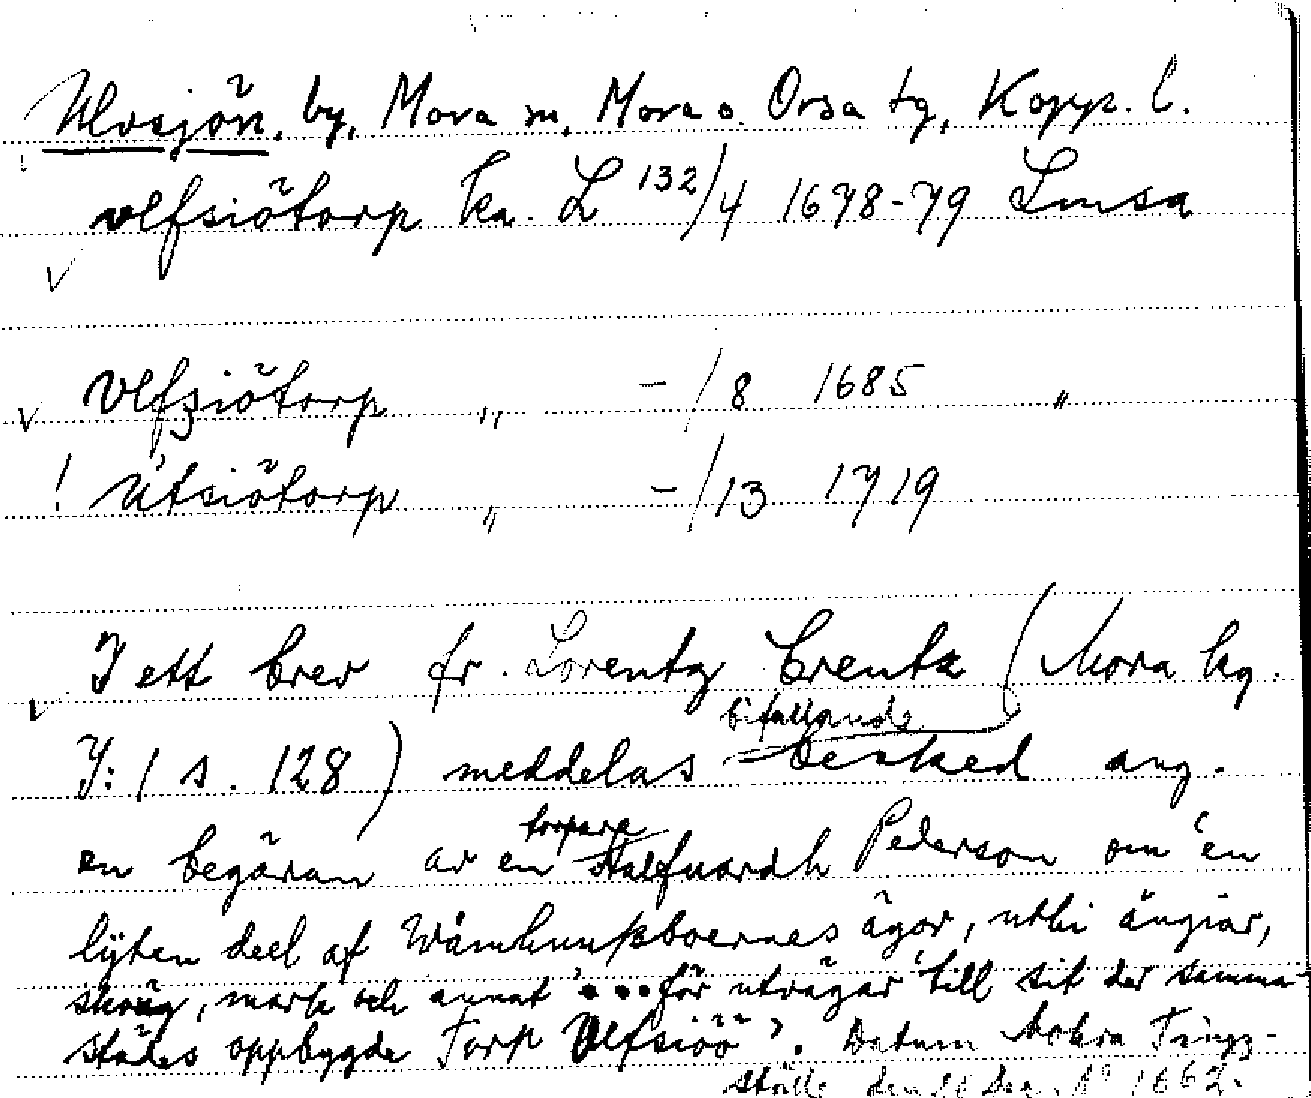 Ulvsjön, by, Mora sn, Mora o. Orsa tg, Kopp. l.
! vlfsiötorp ka. L 132/4 1678-79 Lmsa
v
v Vlfsiötorp " -/8 1685 "
! Utsiötorp " -/13 1719
v I ett brev fr. Lorentz Creutz (Mora kg.
I:1 s. 128) meddelas bifallande besked ang.
en begäran av en torpare Halfuardh Pederson om 'en
lijten deel af Wåmhusboernes ägor, uthi ängiar,
skoug, mark och annat' ... 'för utvägar till sit der samma-
städes oppbygde Torp Ulfsiöö'. Datum Mohra Tingz-
ställe den Dec. Aº 1662.